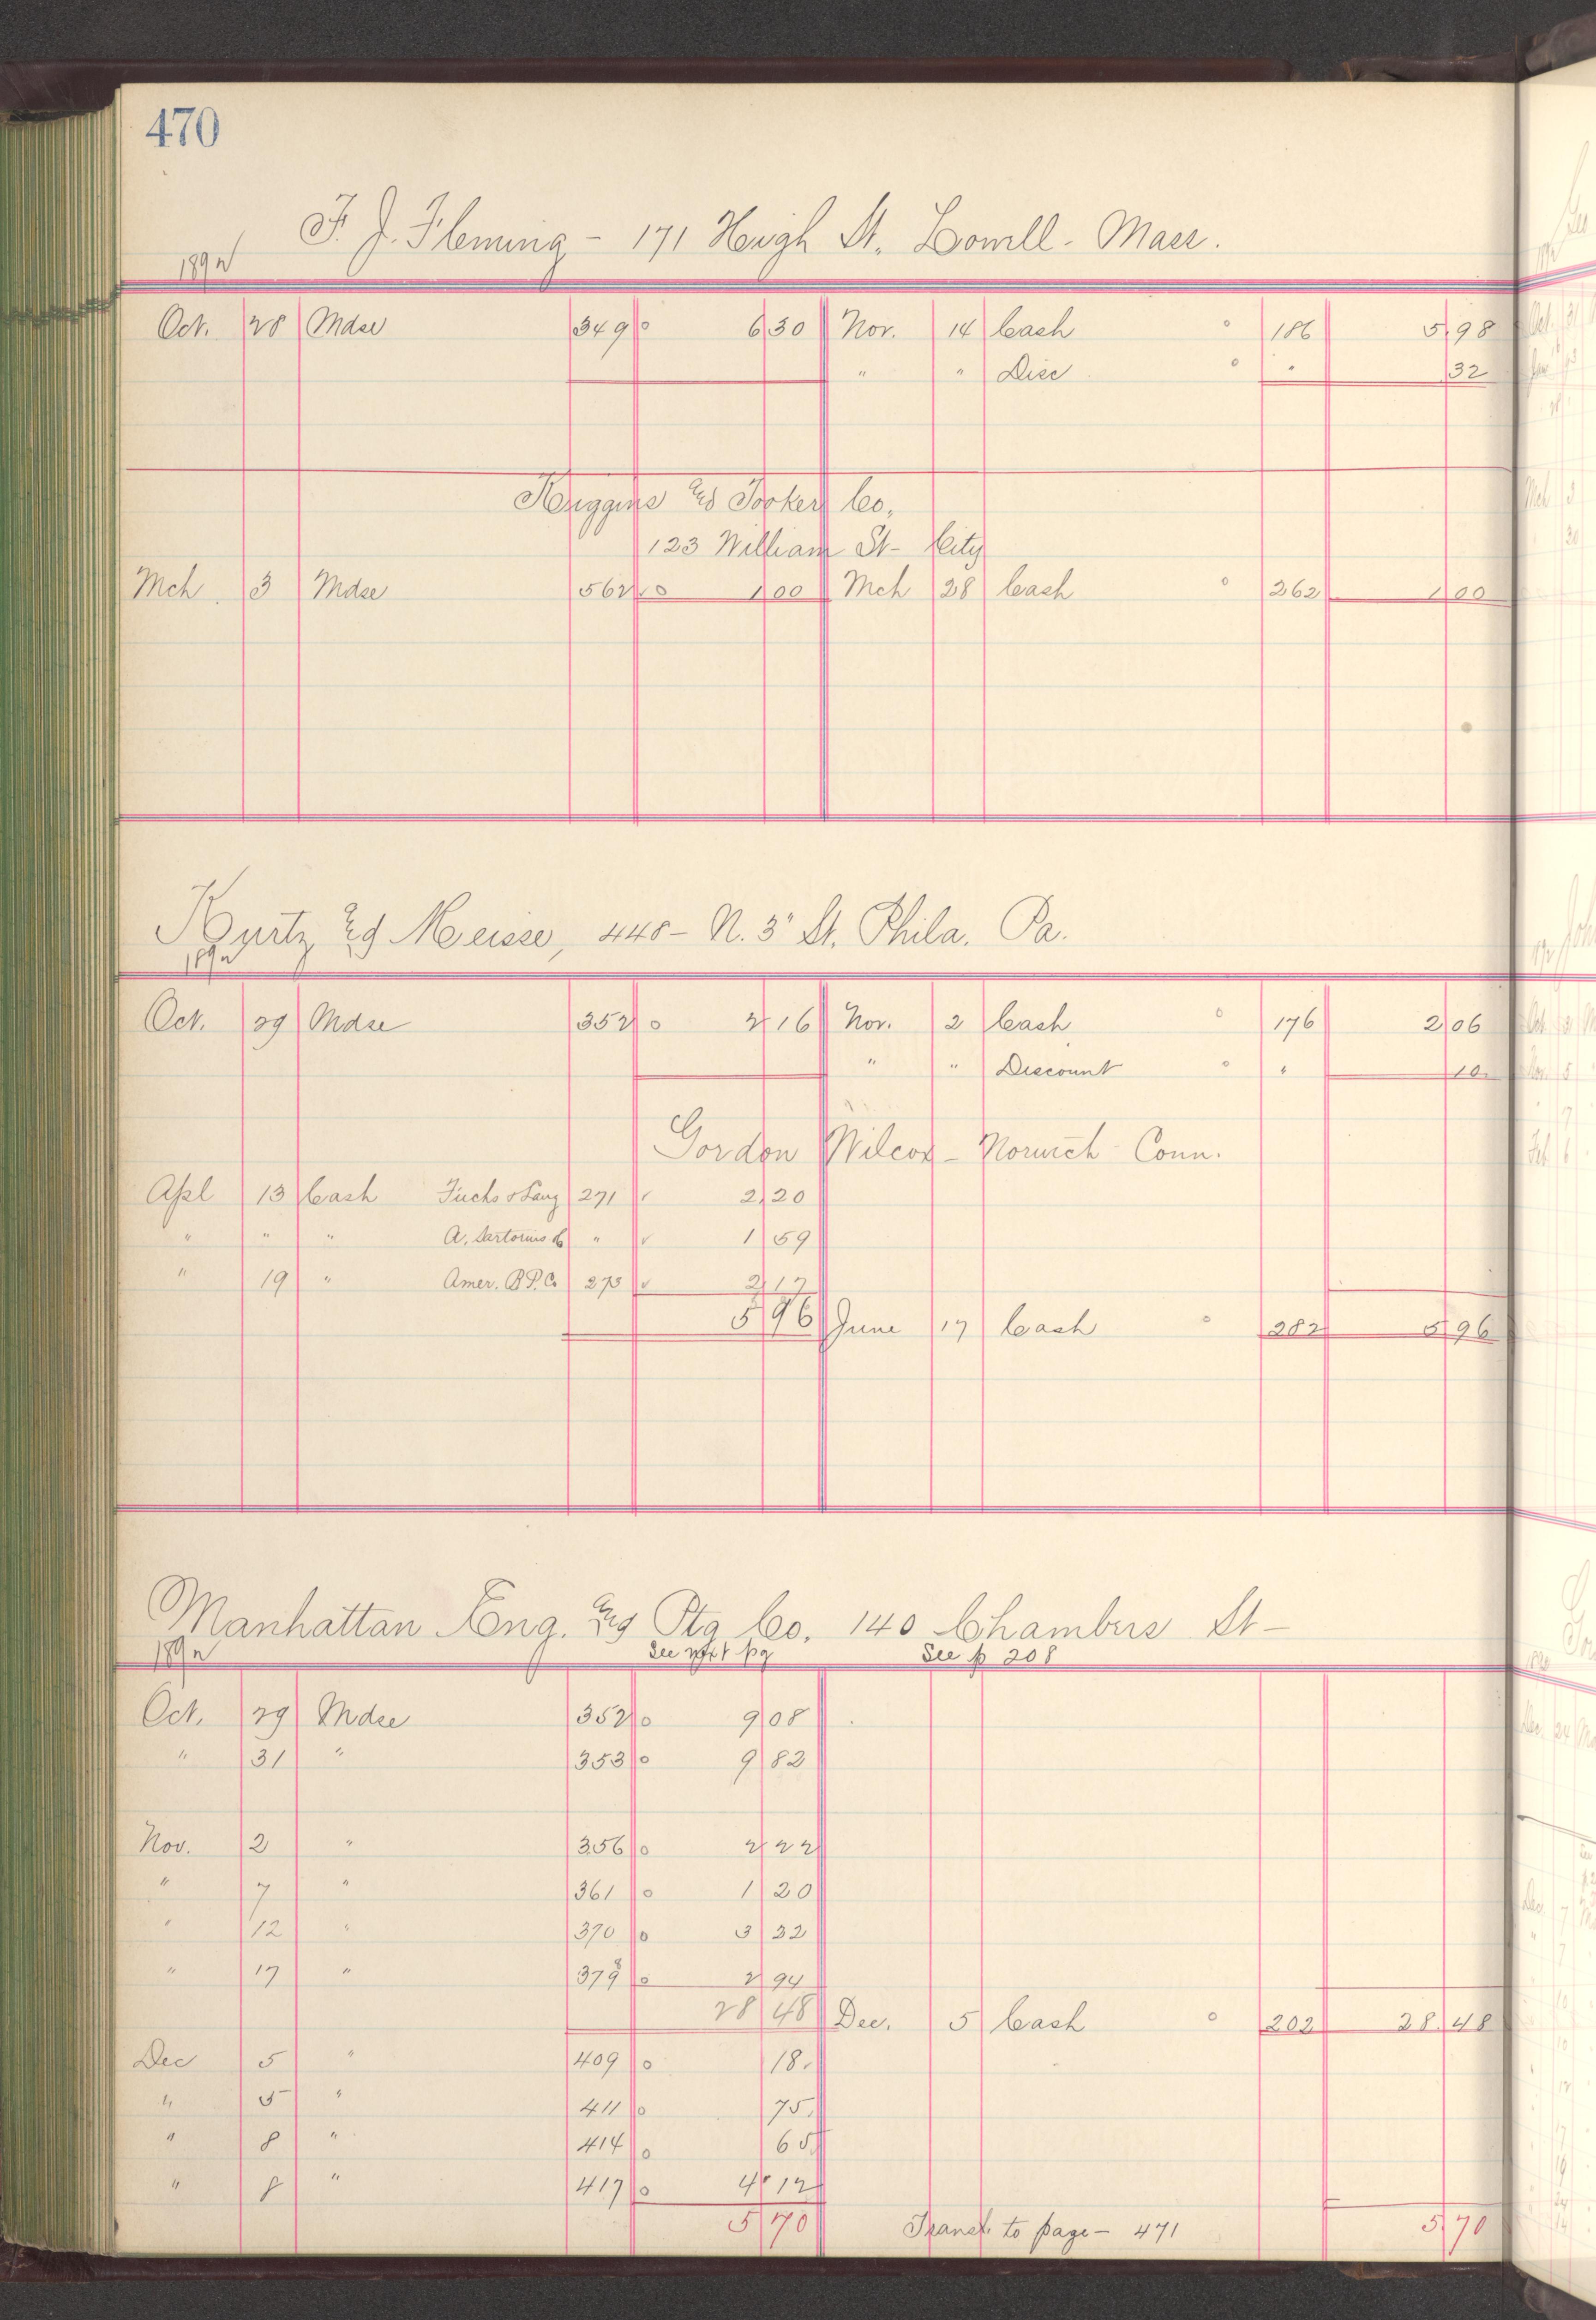 470
F. J. Fleming - 171 High St. Lowell - Mass.
1892
Oct. 28 Mdse 349 o 6 30 Nov. 14 Cash o 186 5.98
" " Disc o " 32
Higgins & Tooker Co.
123 William St - City
Mch 3 Mdse 562 o 1 00 Mch 28 Cash o 262 1 00
Kurtz & Meisse, 448 - N. 3" St. Phila. Pa.
1892
Oct. 29 Mdse 352 o 2 16 Nov. 2 Cash o 176 2 06
" " Discount o " 10
Gordon Wilcox - Norwich Conn.
Apl 13 Cash Fuchs & Lang 271 ✓ 2 20
" " " A. Sartorius Co " ✓ 1 59
" 19 " Amer. B P. Co 273 ✓ 2 17
5 96 June 17 Cash o 282 5 96
Manhattan Eng. & Ptg Co. 140 Chambers St -
1892 See next pg See p 208
Oct. 29 Mdse 352 o 9 08
" 31 " 353 o 9 82
Nov. 2 " 356 o 2 22
" 7 " 361 o 1 20
" 12 " 370 o 3 22
" 17 " 379 o 2 94
28 48 Dec. 5 Cash o 202 28.48
Dec 5 " 409 o 18.
" 5 " 411 o 75.
" 8 " 414 o 65
" 8 " 417 o 4 12
5 70 Transf. to page - 471 5 70